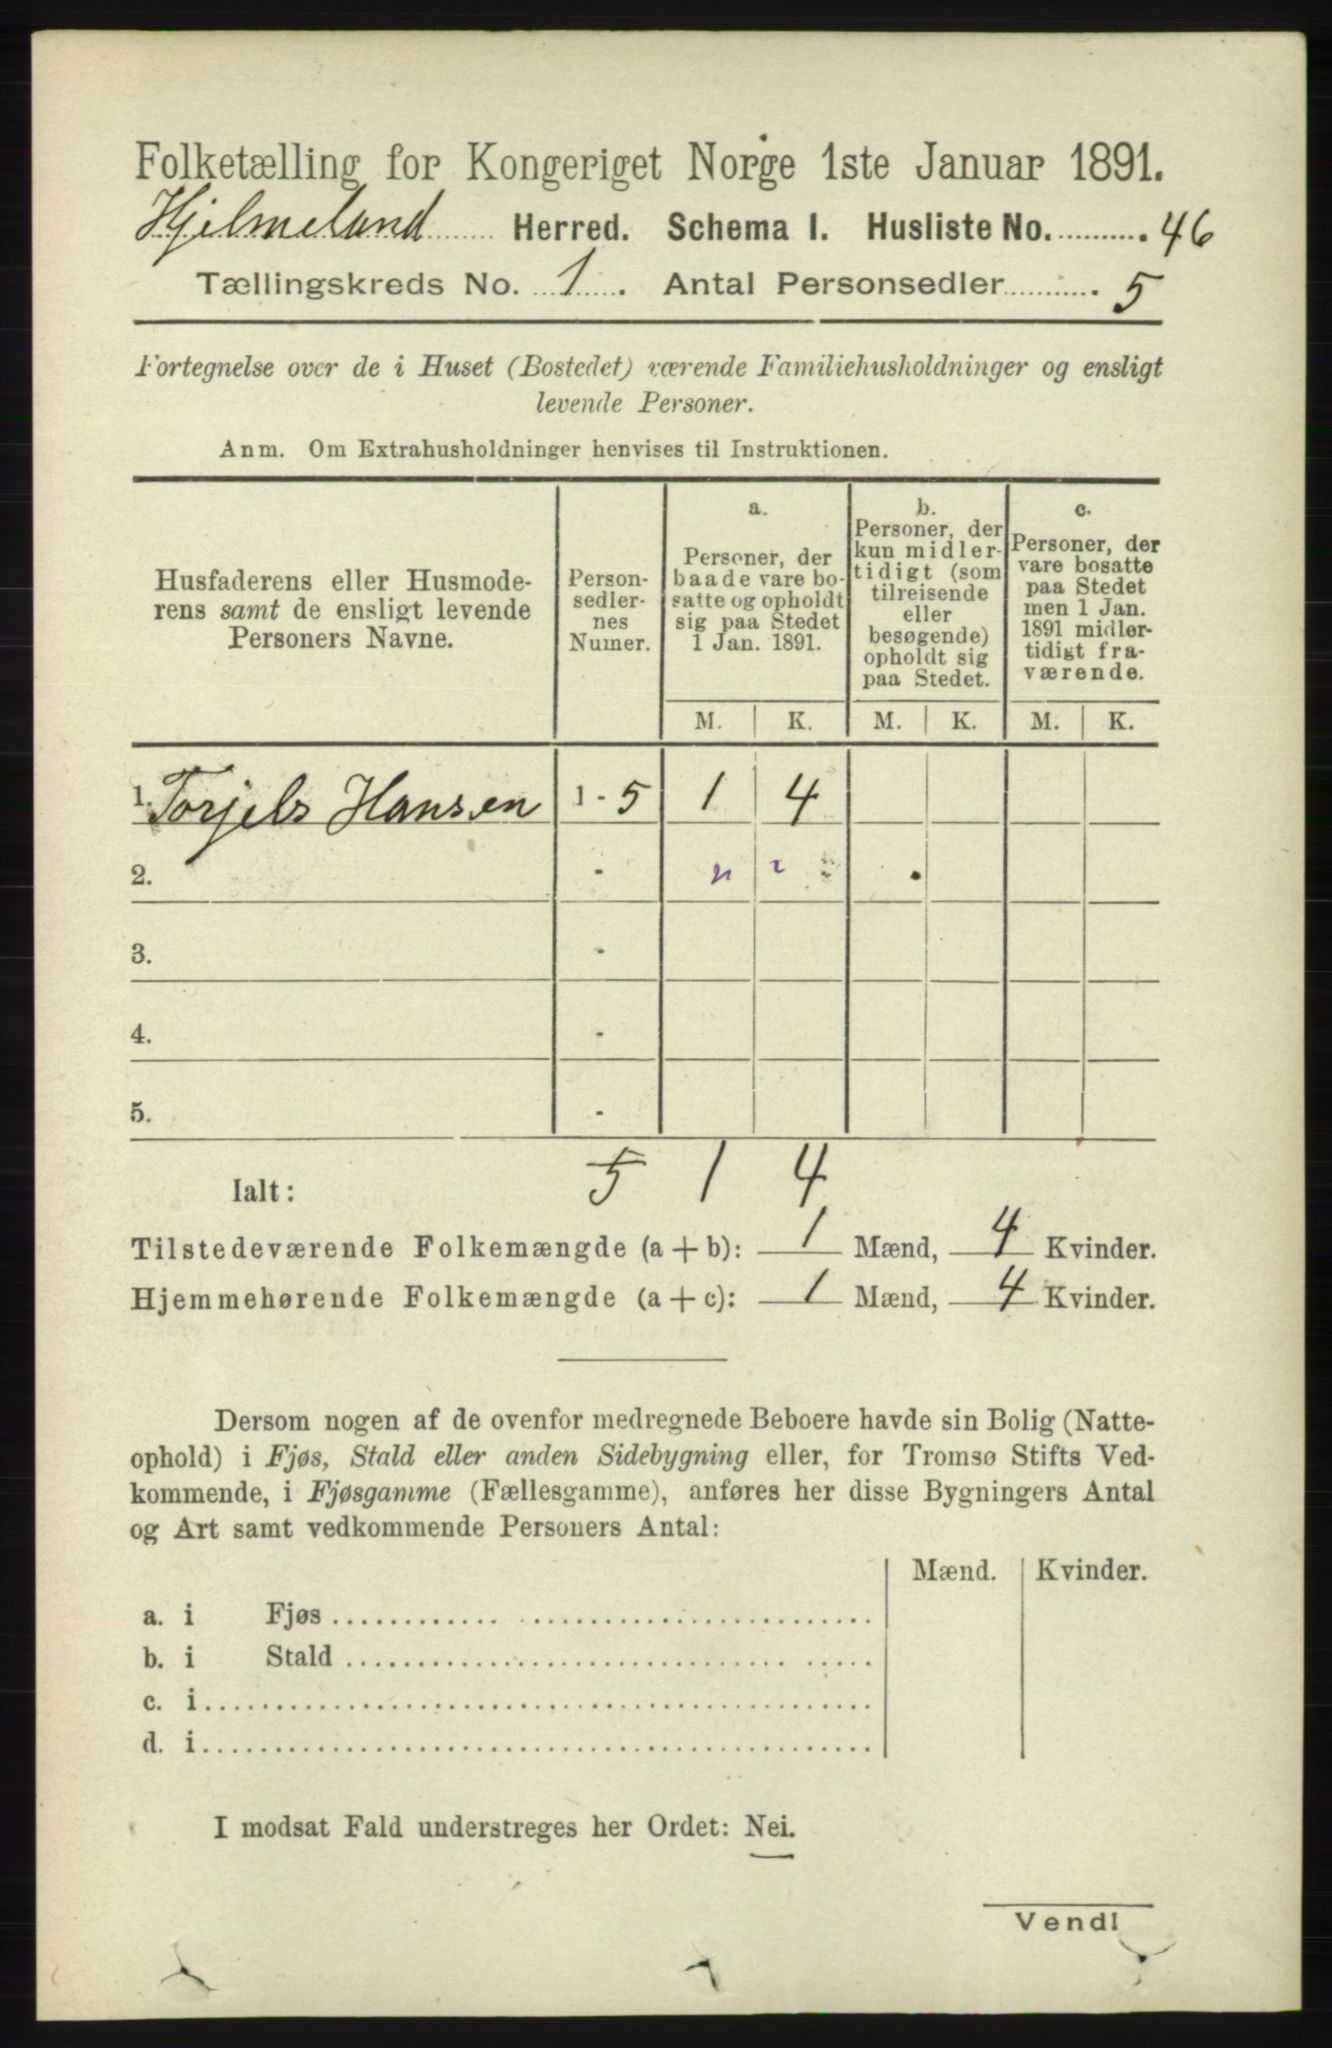 Folketælling for Kongeriget Norge 1ste Januar 1891.
Hjelmeland Herred. Schema I. Husliste No. 46
Tællingskreds No. 1. Antal Personsedler 5
Fortegnelse over de i Huset (Bostedet) værende Familiehusholdninger og ensligt
levende Personer.
Anm. Om Extrahusholdninger henvises til Instruktionen.
Husfaderens eller Husmode-
rens samt de ensligt levende
Personers Navne.
Person-
sedler-
nes
Numer.
a.
Personer, der
baade vare bo-
satte og opholdt
sig paa Stedet
1 Jan. 1891.
b.
Personer, der
kun midler-
tidigt (som
tilreisende
eller
besøgende)
opholdt sig
paa Stedet.
c.
Personer, der
vare bosatte
paa Stedet
men 1 Jan.
1891 midler-
tidigt fra-
værende.
M. K. M. K. M. K.
1. Torjels Hansen 1 - 5 1 4
2. -
3. -
4. -
5. -
Ialt: 5 1 4
Tilstedeværende Folkemængde (a + b): 1 Mænd, 4 Kvinder.
Hjemmehørende Folkemængde (a + c): 1 Mænd, 4 Kvinder.
Dersom nogen af de ovenfor medregnede Beboere havde sin Bolig (Natte-
ophold) i Fjøs, Stald eller anden Sidebygning eller, for Tromsø Stifts Ved-
kommende, i Fjøsgamme (Fællesgamme), anføres her disse Bygningers Antal
og Art samt vedkommende Personers Antal:
Mænd. Kvinder.
a. i Fjøs
b. i Stald
c. i
d. i
I modsat Fald understreges her Ordet: Nei.
Vend!